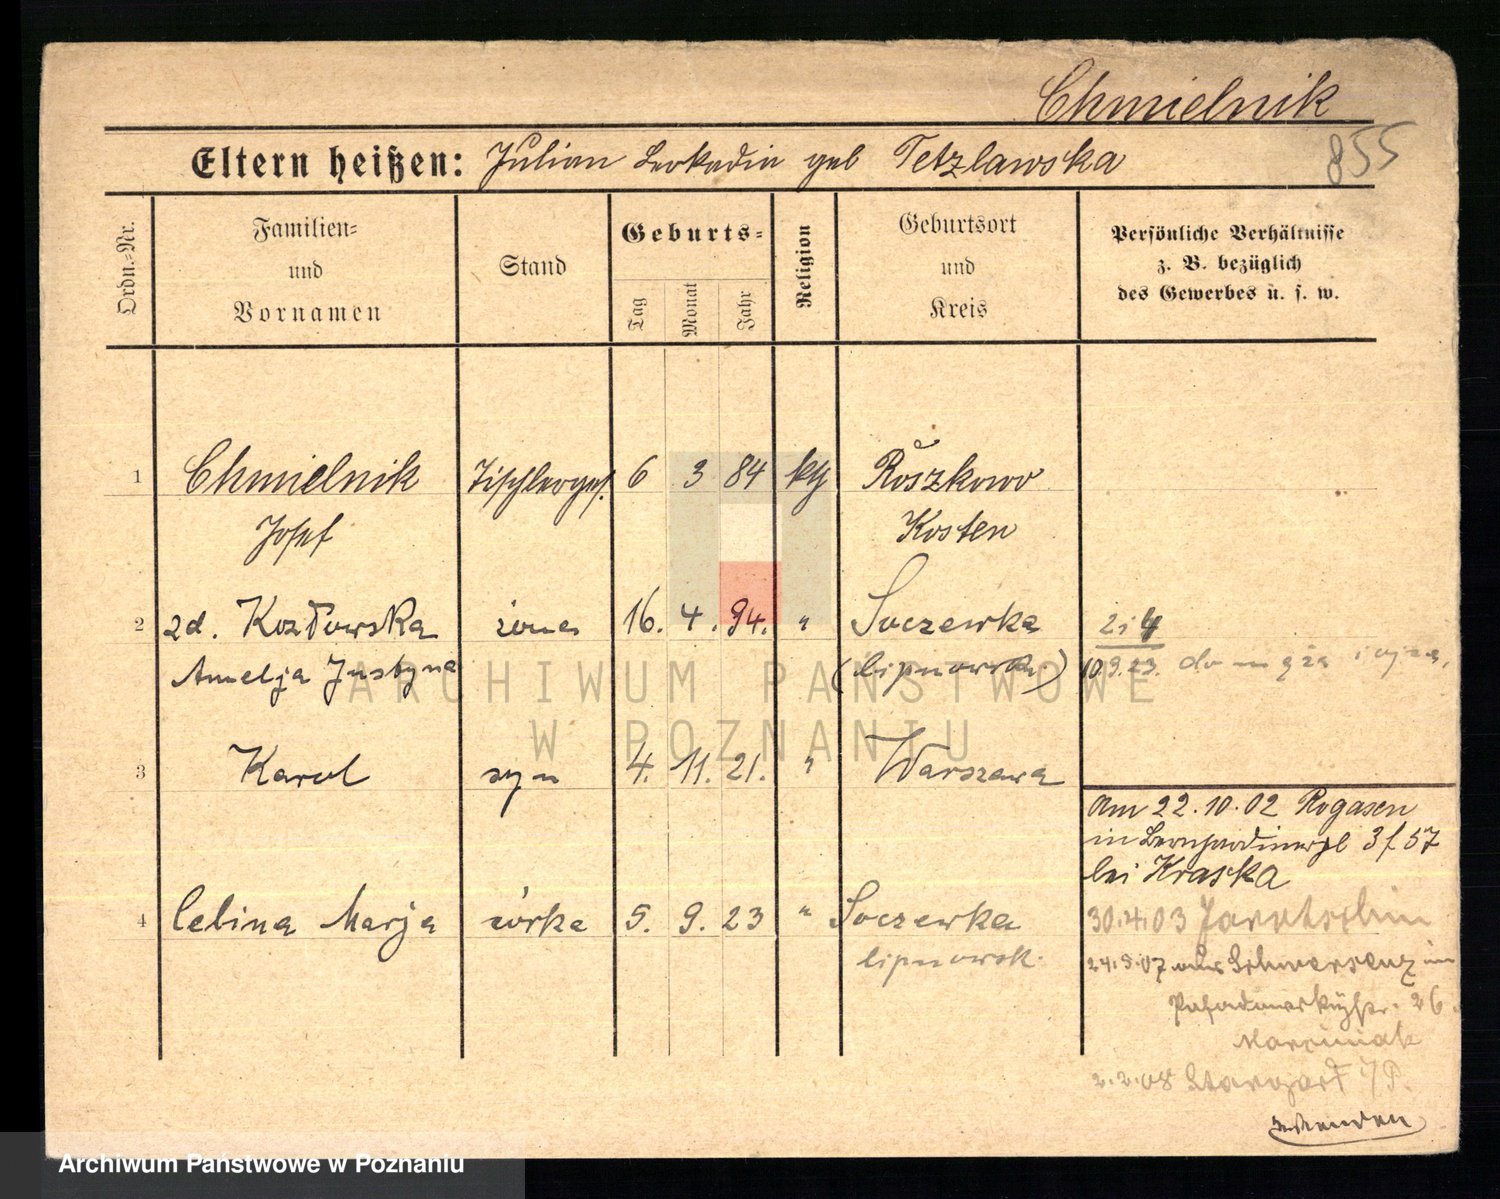 Chmielnik
855
Eltern heißen: Julian Leokadia geb Tetzlawska
Ordn.-Nr.
Familien-
und
Vornamen
Stand
Geburts-
Tag
Monat
Jahr
Religion
Geburtsort
und
Kreis
Persönliche Verhältnisse
z. B. bezüglich
des Gewerbes u. s. w.
1 Chmielnik Tischlerges. 6 3 84 kth Roszkowo
Josef Kosten
2 zd. Kozłowska żona 16. 4. 94. " Soczewka 2 i 4
Amelja Justyna (lipnowska) 10.9.23. do męża i ojca,
3 Karol syn 4. 11. 21. " Warszawa
Am 22.10.02 Rogasen
in Bernhardinerpl 3 f 57
bei Kraska
4 Celina Marja córka 5. 9. 23 " Soczewka
lipnowsk.
30.4.03 Jarotschin
24.5.07 aus Schwersenz in
26.
Marciniak
2.2.08 Stargard i/P.
ARCHIWUM PAŃSTWOWE
W POZNANIU
Archiwum Państwowe w Poznaniu